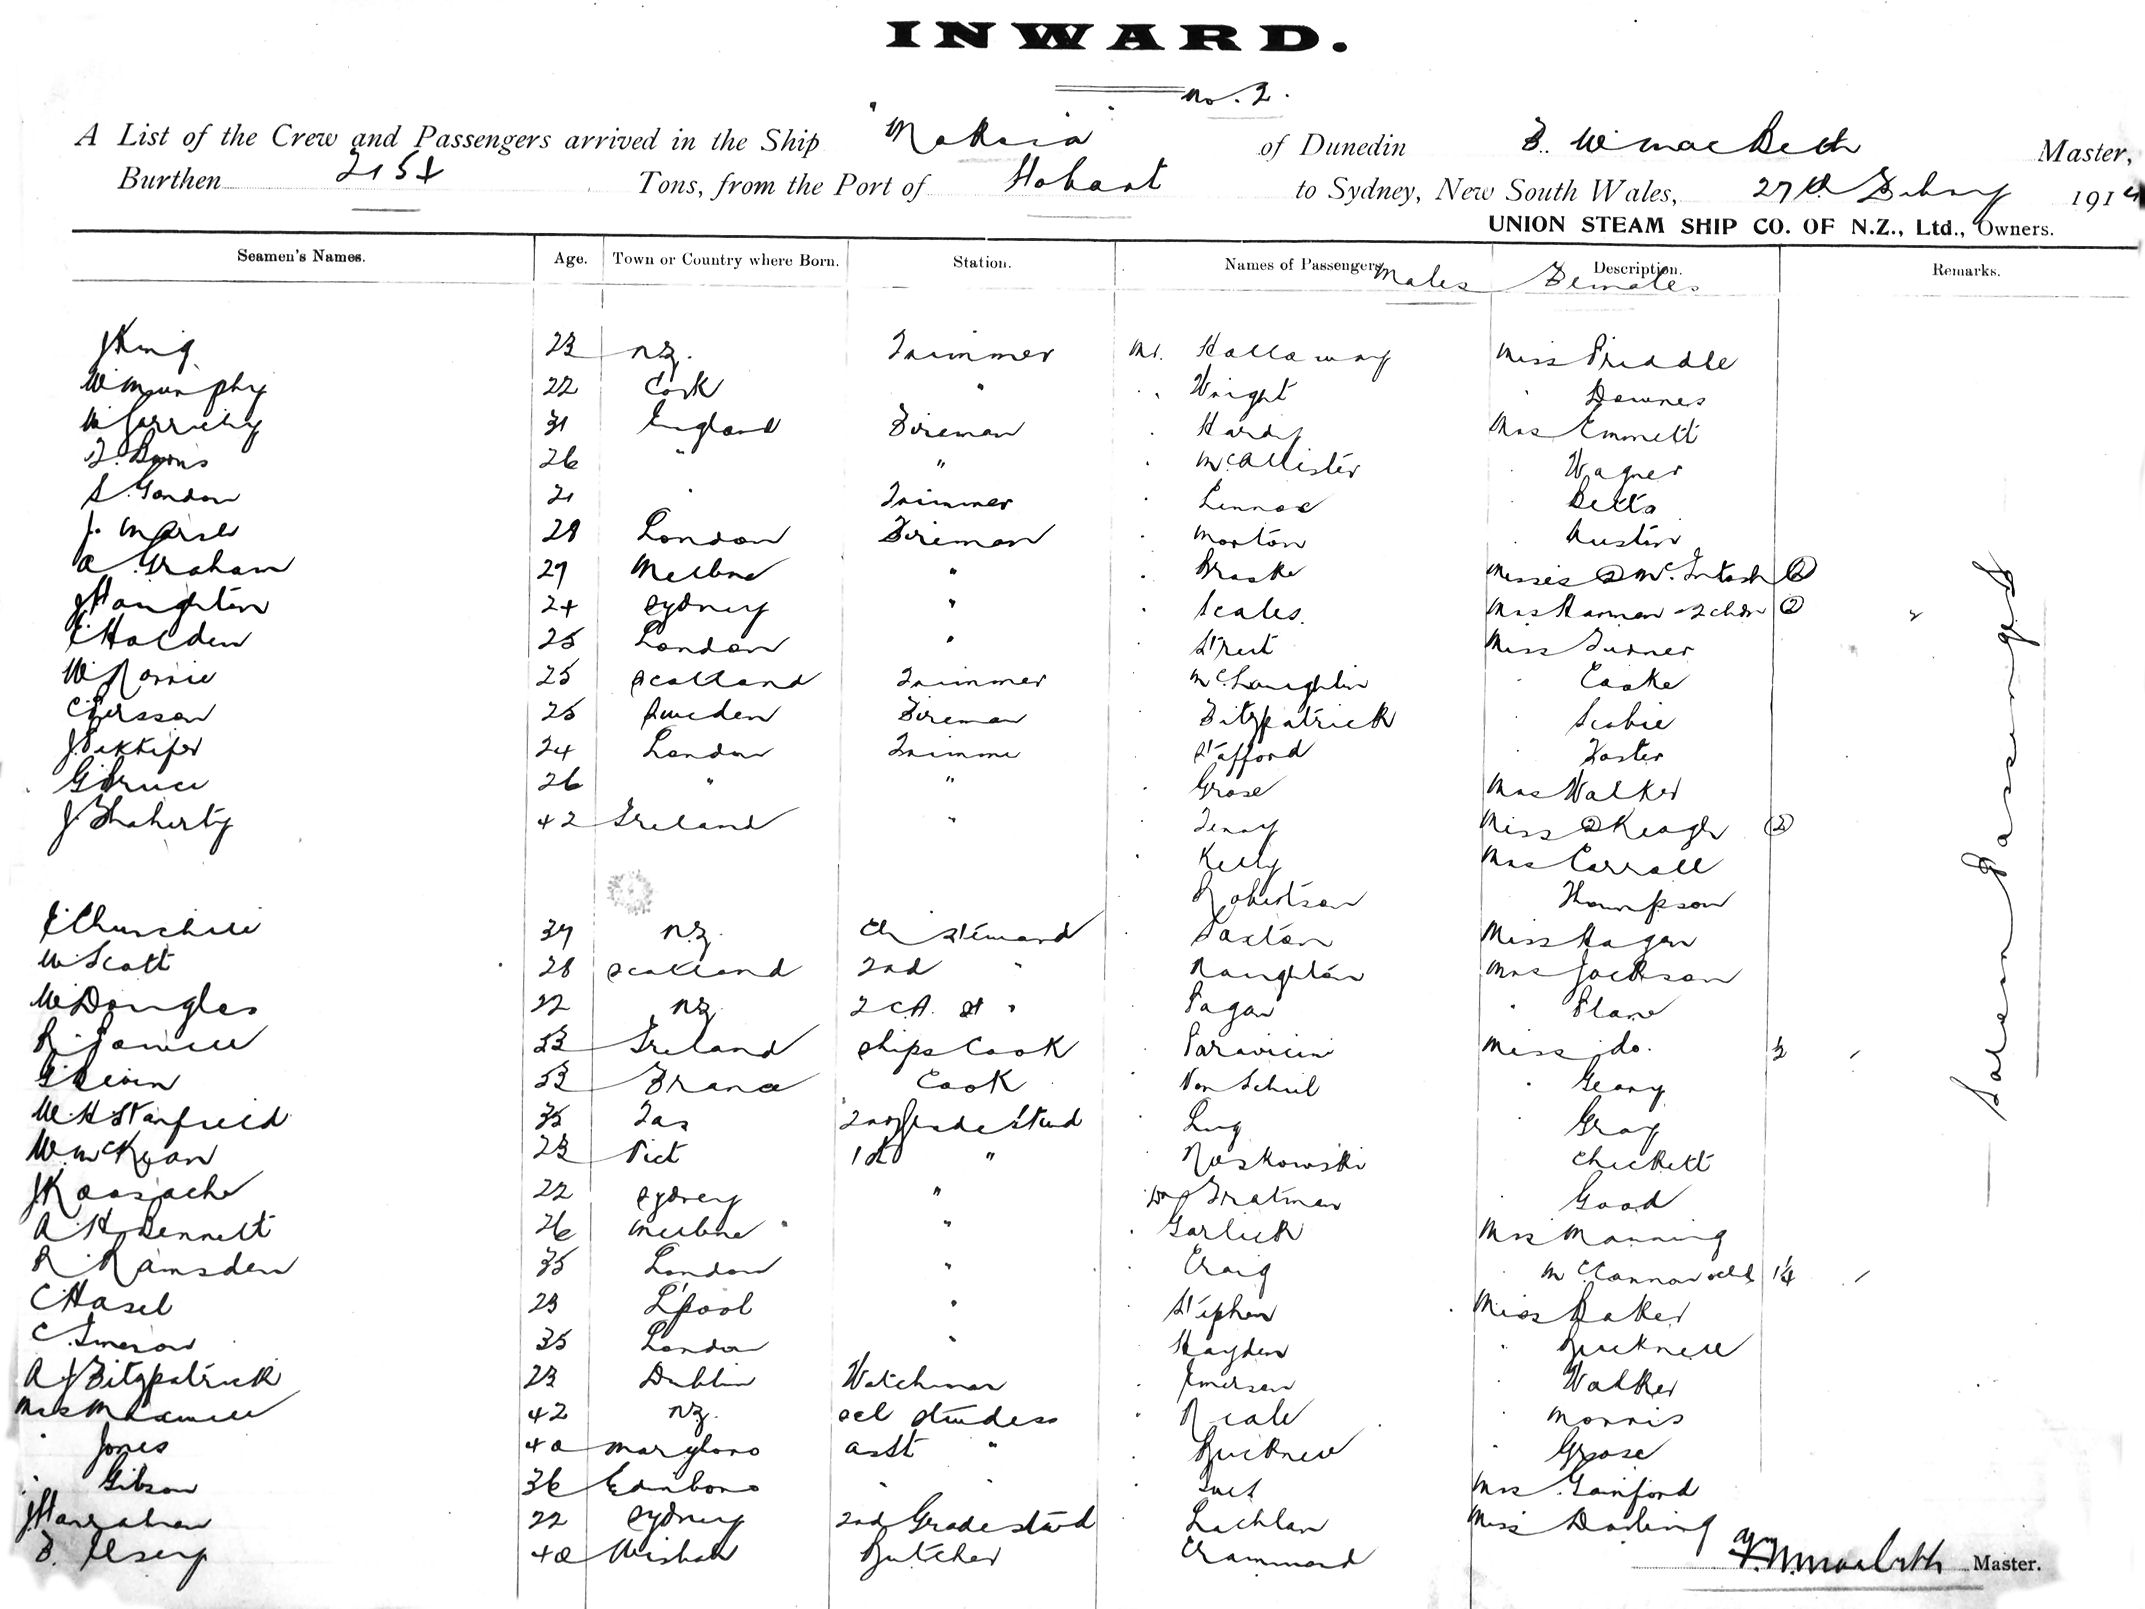 INWARD.
No. 2.
A List of the Crew and Passengers arrived in the Ship "Mokoia" of Dunedin F. W. MacBeth Master,
Burthen 2154 Tons, from the Port of Hobart to Sydney, New South Wales, 27th Febry 1914
UNION STEAM SHIP CO. OF N.Z., Ltd., Owners.
Seamen's Names. Age. Town or Country where Born. Station. Names of Passengers Males Description. Females Remarks.
J King 23 NZ. Trimmer Mr. Hallaway Miss Priddle
W Murphy 22 Cork " " Wright " Downes
M Garrity 31 England Fireman " Hardy Mrs Emmett
T. Byrns 26 " " " McAllister " Wagner
S. Gordon 21 " Trimmer " Lennox " Betts
J. Marsh 28 London Fireman " Morton " Austin
A Graham 29 Melbne " " Brooke Misses 2 McIntosh 2
J Haughton 24 Sydney " " Scales. Mrs Harman & 2 chdn 2 "
E Holden 25 London " " Street Miss Turner
W Rorrie 25 Scotland Trimmer " McLoughlin " Cooke
C Persson 25 Sweden Fireman " Fitzpatrick " Scobie
J 24 London Trimmer " Stafford " Foster
G Bruce 26 " " " Grose Mrs Walker
J Flaherty 42 Ireland " " Terry Miss 2 Keogh 2
" Kelly Mrs Carroll
" Robertson " Thompson
E Churchill 39 N.Z. Ch Steward " Saxton Miss Hagen
W Scott 28 Scotland 2nd " " Naughton Mrs Jackson
W Douglas 22 NZ 2 Cl. St " " Fagan " Plane
R. Powell 33 Ireland Ships Cook " Paravicini Miss do. ½
G 33 France Cook " Von " Geary
W. H Stanfield 35 Tas 2nd Grade Stwd " Lug " Gray
W. McKean 23 Vict 1st " " Roskowski " Chickett
J 22 Sydney " " Dr Gratman " Good
A. H Bennett 26 Melbne " " Garlick Mrs Manning
R Ramsden 35 London " " Craig " McConnon 1¼
C Hasel 23 L'pool " " Stephen Miss Baker
C. Emerson 35 London " " Hayden " Bucknell
A J Fitzpatrick 23 Dublin Watchman " Emerson " Walker
Mrs Maxwell 42 NZ. Stwdess " Neale " Morris
" Jones 40 Maryboro asst " " Bucknell " Grose
" Gibson 36 Edinboro " " Mrs Gainford
J Hanrahan 22 Sydney 2nd Grade stwd " Lachlan Miss Darling
F. 40 Wishaw Butcher " Crammond
Saloon Passengers
F. W. MacBeth Master.